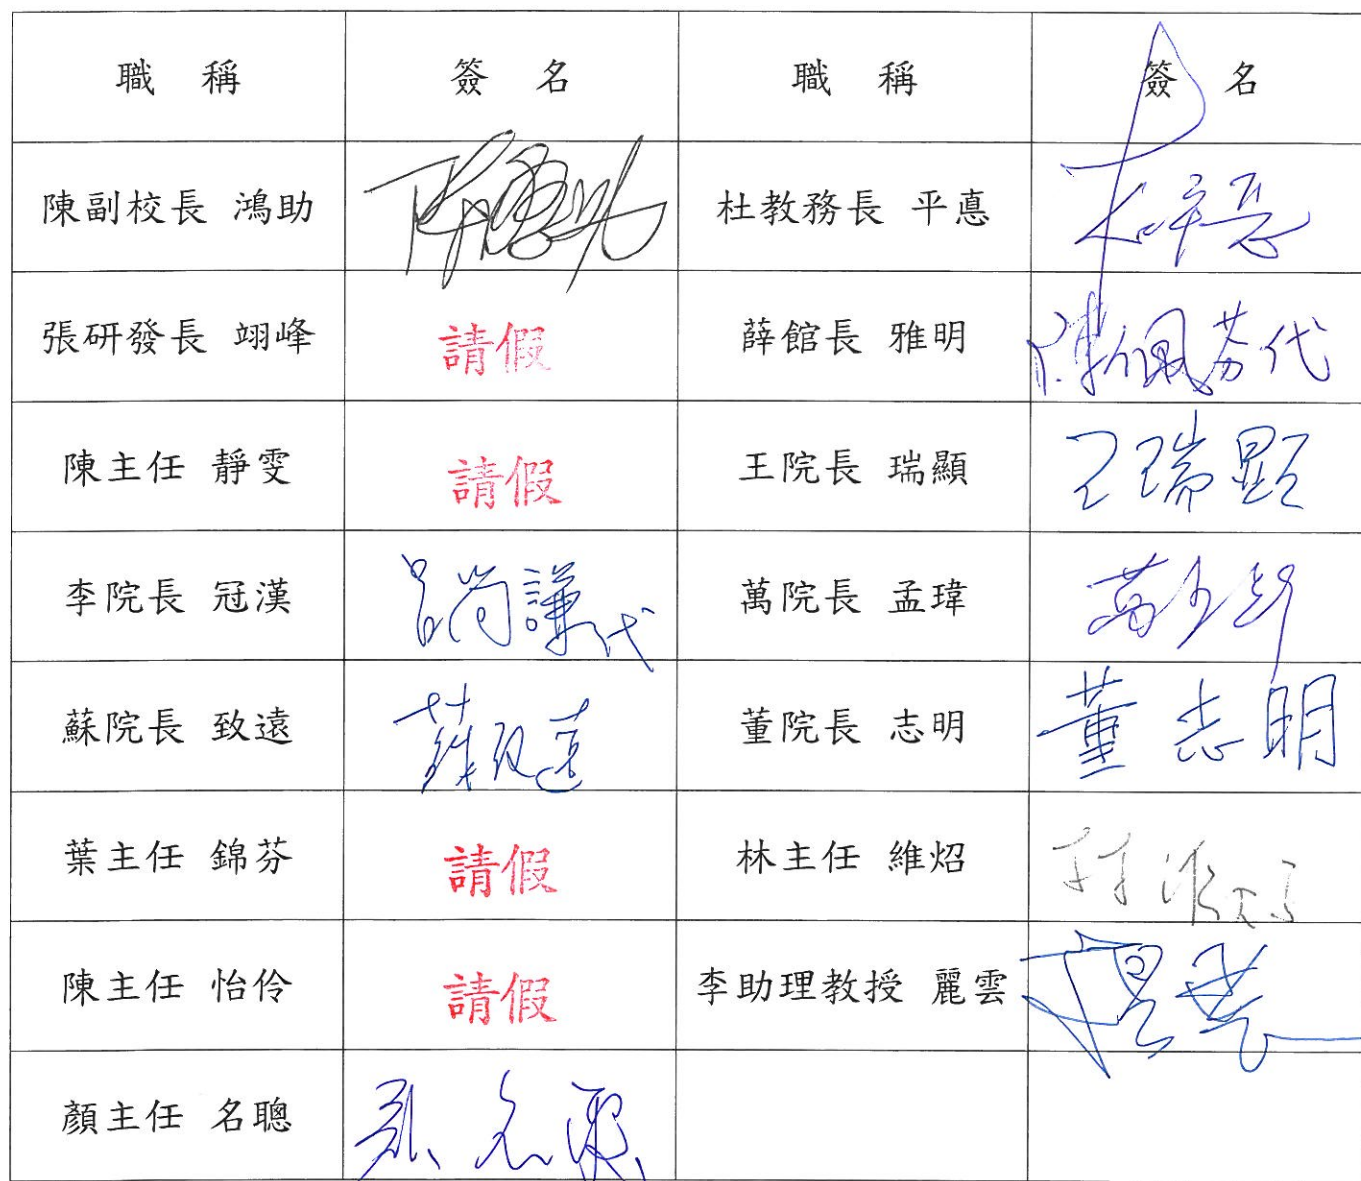 職 稱 簽 名 職 稱 簽 名
陳副校長 鴻助 杜教務長 平悳 杜平悳
張研發長 翊峰 請假 薛館長 雅明 陳佩芬代
陳主任 靜雯 請假 王院長 瑞顯 王瑞顯
李院長 冠漢 呂尚謙代 萬院長 孟瑋
蘇院長 致遠 蘇致遠 董院長 志明 董志明
葉主任 錦芬 請假 林主任 維炤
陳主任 怡伶 請假 李助理教授 麗雲
顏主任 名聰